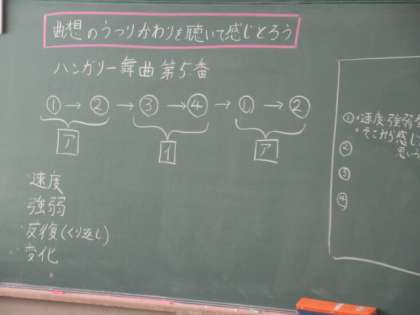 曲想のうつりかわりを聴いて感じとろう
ハンガリー舞曲第5番
①→②→③→④→①→②
ア イ ア
・速度
・強弱
・反復(くり返し)
・変化
①・速度 強弱
・そこから感じ
思い
②
③
④